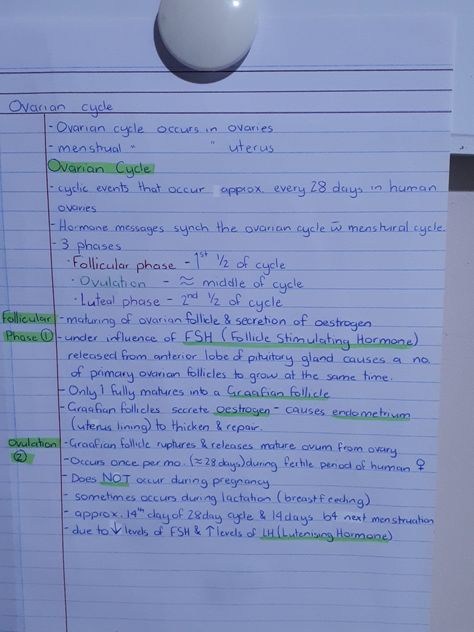 Ovarian cycle
- Ovarian cycle occurs in ovaries
- menstrual " " uterus
Ovarian Cycle
- cyclic events that occur approx. every 28 days in human
ovaries
- Hormone messages synch the ovarian cycle w̄ menstural cycle.
- 3 phases
· Follicular phase - 1st 1/2 of cycle
· Ovulation - ≈ middle of cycle
· Luteal phase - 2nd 1/2 of cycle
Follicular - maturing of ovarian follicle & secretion of oestrogen
Phase ① - under influence of FSH (Follicle Stimulating Hormone)
released from anterior lobe of pituitary gland causes a no.
of primary ovarian follicles to grow at the same time.
- Only 1 fully matures into a Graafian follicle
- Graafian follicles secrete oestrogen - causes endometrium
(uterus lining) to thicken & repair.
Ovulation - Graafian follicle ruptures & releases mature ovum from ovary
② - Occurs once per mo. (≈28 days) during fertile period of human ♀
- Does NOT occur during pregnancy
- sometimes occurs during lactation (breastfeeding)
- approx. 14th day of 28 day cycle & 14 days b4 next menstruation
- due to ↓ levels of FSH & ↑ levels of LH (Lutenising Hormone)